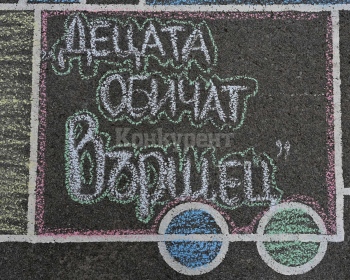 „ДЕЦАТА
ОБИЧАТ
Конкурент
Вършец”